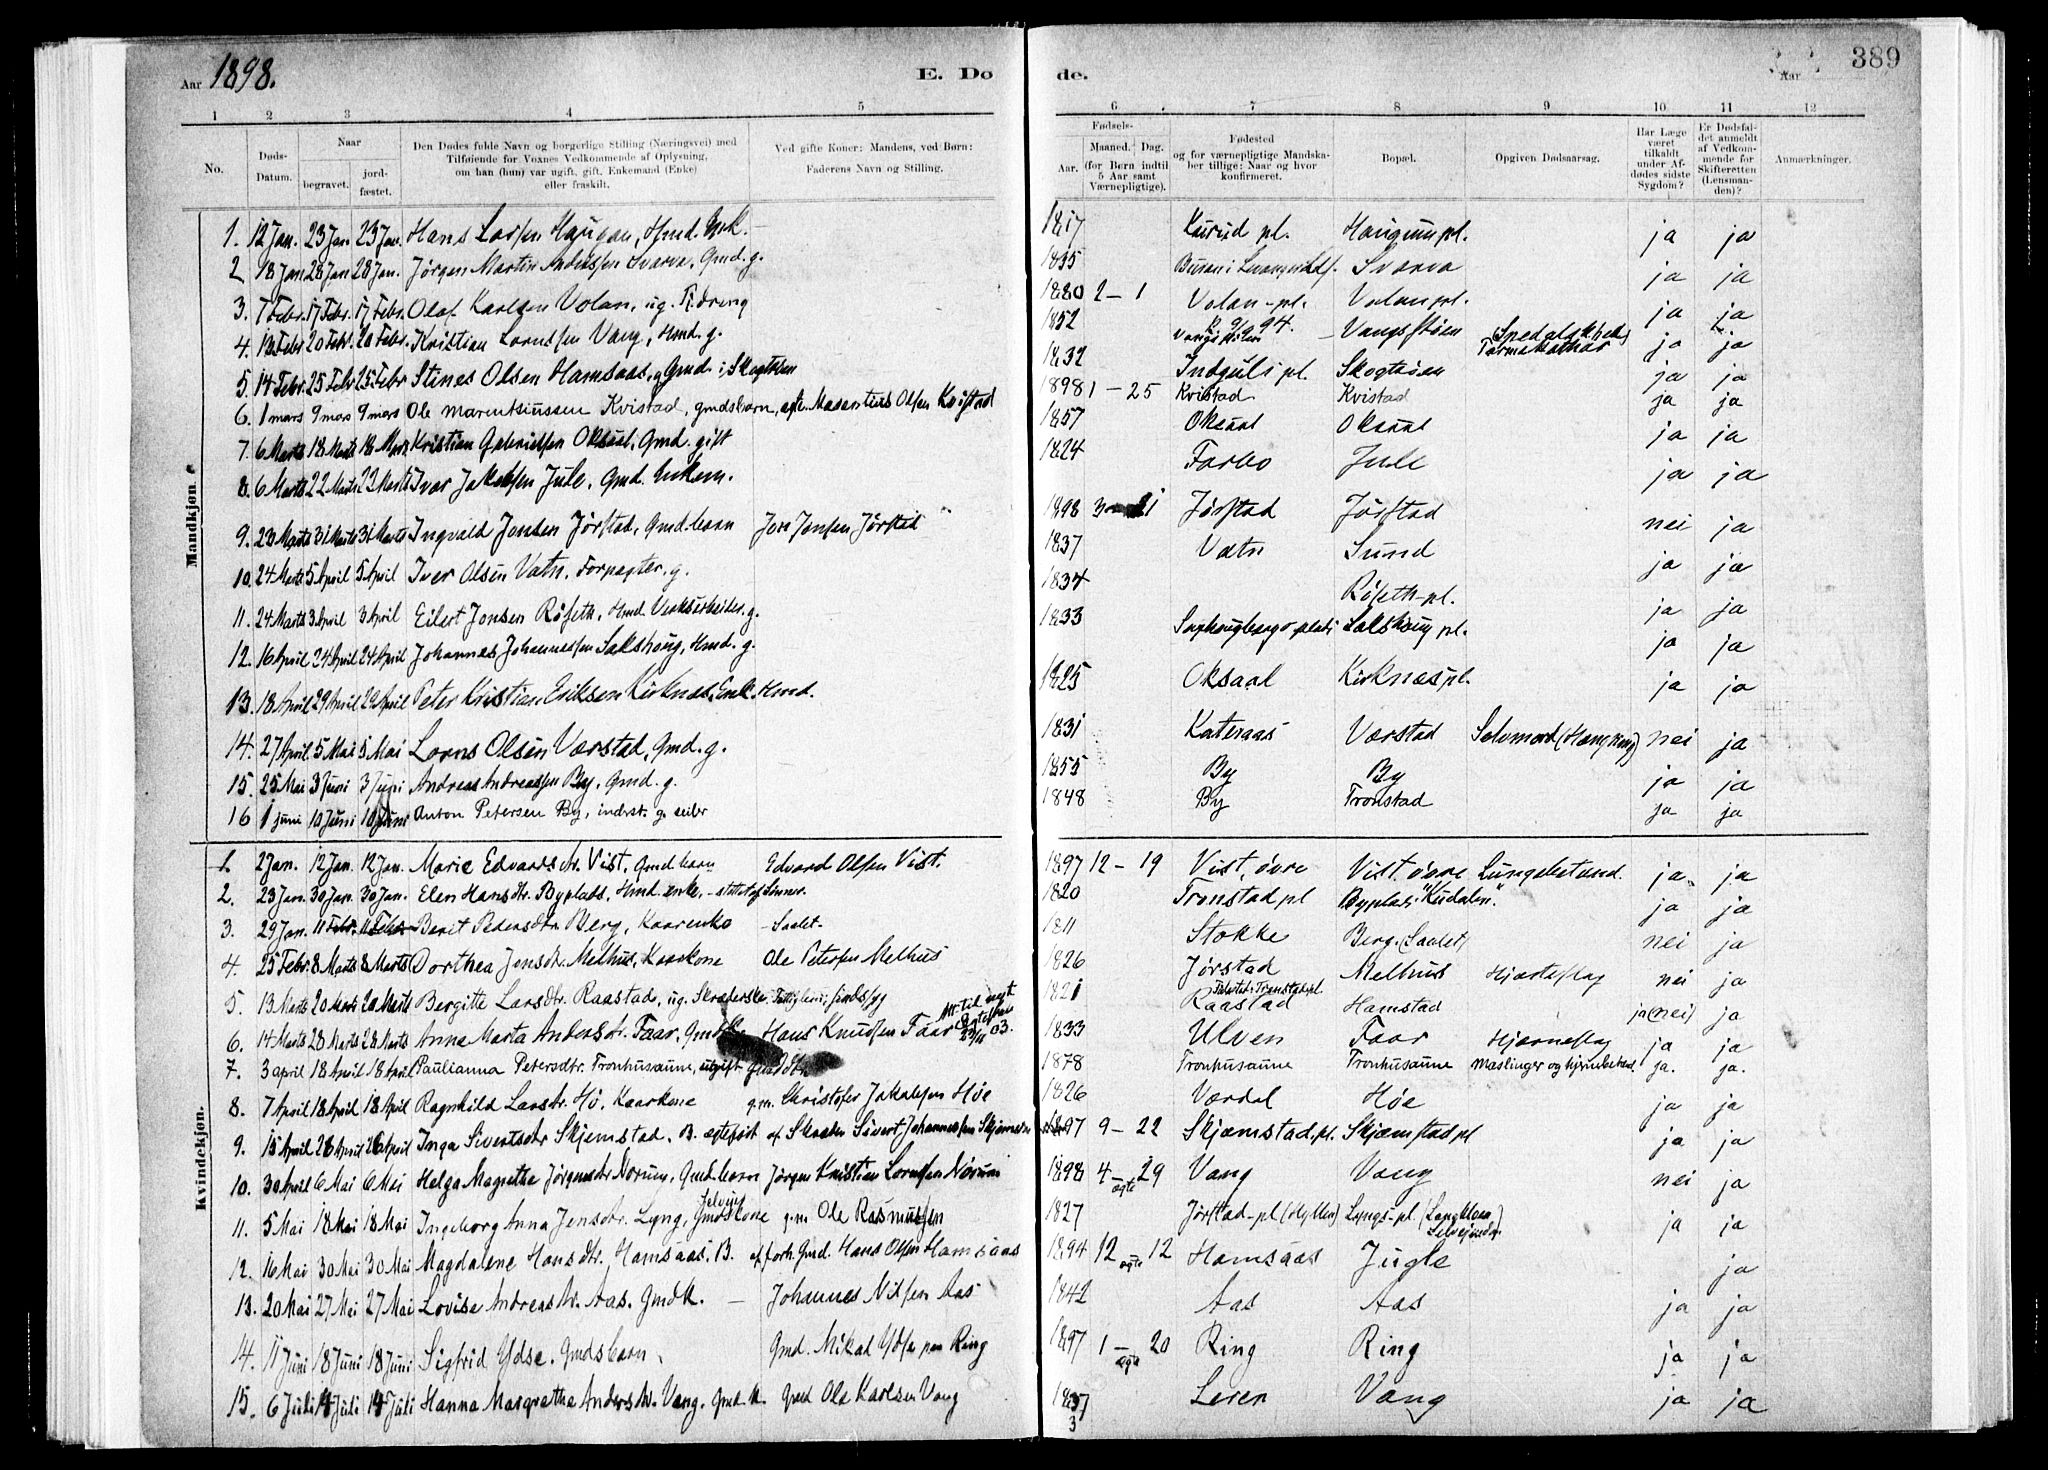 Aar 1898.
E. Dø
de.
Aar
389
1 2 3 4 5 6 7 8 9 10 11 12
No.
Døds-Datum.
Naar
begravet.
jord-fæstet.
Den Dødes fulde Navn og borgerlige Stilling (Næringsvei) med Tilføiende for Voxnes Vedkommende af Oplysning, om han (hun) var ugift, gift, Enkemand (Enke) eller fraskilt.
Ved gifte Koner: Mandens, ved Børn: Faderens Navn og Stilling.
Fødsels-
Aar.
Maaned. Dag.
(for Børn indtil 5 Aar samt Værnepligtige).
Fødested og for værnepligtige Mandskaber tillige: Naar og hvor konfirmeret.
Bopæl.
Opgiven Dødsaarsag.
Har Læge været tilkaldt under Afdødes sidste Sygdom?
Er Dødsfaldet anmeldt af Vedkommende for Skifteretten (Lensmanden)?
Anmærkninger.
Mandkjøn
1. 12 Jan. 23 Jan. 23 Jan. Hans Larsen Haugan, Hmd. Enk. 1817 pl. Haugum pl. ja ja
2 18 Jan 28 Jan 28 Jan. Jørgen Martin Svarva, Gmd. g. 1835 Svarva ja ja
3. 7 Febr. 17 Febr. 17 Febr. Olaf Karlsen Volan, ug. 1880 2 – 1 Volan-pl. Volan pl. ja ja
4. 13 Febr 20 Febr. 20 Febr. Kristian Lornssen Vang, Hmd. g. 1852 Vangsstøen ja ja
5. 14 Febr. 25 Febr 25 Febr Stines Olsen Hamsaas, Gmd. i Skogtrøen 1832 pl. Skogtrøen Tarmekathar ja ja
6. 1 mars 9 mars 9 mars Ole Marentsiussen Kvistad, gmdsbarn, egte. Marentius Olsen Kvistad 1898 1 – 25 Kvistad Kvistad ja ja
7. 6 Marts 18 Marts 18 Marts Kristian Gabrielsen Oksaal, Gmd. gift 1857 Oksaal Oksaal ja ja
8. 6 Marts 22 Marts 22 Marts Ivar Jakobsen Jule. Gmd. Enkem. 1824 Farbo Jule ja ja
9. 23 Marts 31 Marts 31 Marts Ingvald Jensen Jørstad, Gmd.barn Jens Jensen Jørstad 1898 3 – 21 Jørstad Jørstad nei ja
10. 24 Marts 5 April 5 April Iver Olsen Vatn. Forpagter. g. 1837 Vatn Sund ja ja
11. 24 Marts 3 April 3 April Eilert Jensen Røseth, Hmd. Verksarbeider. g. 1834 Røseth-pl. ja ja
12. 16 April 24 April 24 April Johannes Johannessen Sakshoug, Hmd. g. 1833 Sakshoug pl. ja ja
13. 18 April 29 April 29 April Peter Kristian Eriksen Kirknes, Enk. Hmd. 1825 Oksaal Kirknæs pl. ja ja
14. 27 April 5 Mai 5 Mai Lorns Olsen Værstad, Gmd. g. 1831 Kateraas Værstad Selvmord (Hængning) nei ja
15. 25 Mai 3 Juni 3 Juni Andreas Andreassen By, Gmd. g. 1855 By By ja ja
16 1 juni 10 Juni 10 Juni Anton Petersen By, inderst. g. 1848 By Tronstad ja ja
Kvindekjøn.
1. 2 Jan. 12 Jan. 12 Jan. Marie Edvardsdtr. Vist, Gmd.barn Edvard Olsen Vist. 1897 12 – 19 Vist, øvre Vist. øvre Lungebetænd. ja ja
2. 23 Jan. 30 Jan. 30 Jan. Elen Hansdtr. Byplads, Hmd. enke, 1820 Tronstad pl Byplads "Kudalen". ja ja
3. 29 Jan. 11 Febr. 11 Febr. Berit Pedersdtr. Berg, Kaarenke – Saalet. 1811 Stokke Berg. (Saalet) nei ja
4. 25 Febr. 8 Marts 8 Marts Dorthea Jensdtr. Melhus, Kaarkone Ole Petersen Melhus 1826 Jørstad Melhus Hjerteslag nei ja
5. 13 Marts 20 Marts 20 Marts Bergitte Larsdtr. Raastad, ug. sindssyg 1821 Raastad Hamstad ja (nei) ja
6. 14 Marts 28 Marts 28 Marts Anne Marta Andersdtr. Faar, Gmd. Hans Knudsen Faar 1833 Ulven Faar Hjerneslag ja ja
7. 3 april 18 April 18 April Paulianna Petersdtr. Tronhusaune, ugift 1878 Tronhusaune Tronhusaune Mæslinger og hjernebetænd. ja. ja.
8. 7 April 18 April 18 April Ragnhild Larsdtr. Hø, Kaarkone g.m. Christofer Jakobsen Høe 1826 Værdal Høe ja ja
9. 15 April 26 April 26 April Inga Sivertsdtr Skjemstad, B. egtefødt af Skræder Sivert Johannessen Skjemstad 1897 9 – 22 Skjæmstad. pl. Skjæmstad pl ja ja
10. 30 April 6 Mai 6 Mai Helga Magrethe Jørgensdtr Norum, Gmd.barn Jørgen Kristian Lornssen Norum 1898 4 – 29 ægte Vang Vang nei ja
11. 5 Mai 18 Mai 18 Mai Ingeborg Anna Jensdtr. Lyng, Selveier Gmdskone g.m. Ole Rasmussen 1827 Jørstad-pl (Hyllen) Lyngs-pl. ja ja
12. 16 Mai 30 Mai 30 Mai Magdalene Hansdtr. Hamsaas, B. af forh. Gmd. Hans Olsen Hamsaas 1894 12 – 12 ægte Hamsaas Jugle ja
13. 20 Mai 27 Mai 27 Mai Lovise Andreasdtr. Aas. Gmdk. – Johannes Nilsen Aas 1842 Aas Aas ja ja
14. 11 Juni 18 Juni 18 Juni Sigfrid Ydse. Gmdsbarn Gmd. Mikal Ydse Ring 1897 1 – 20 ægte Ring Ring ja ja
15. 6 Juli 14 Juli 14 Juli Hanna Margrethe Andersdtr. Vang. Gmd.k. Gmd Ole Karlsen Vang 1837 3 Leren Vang ja ja